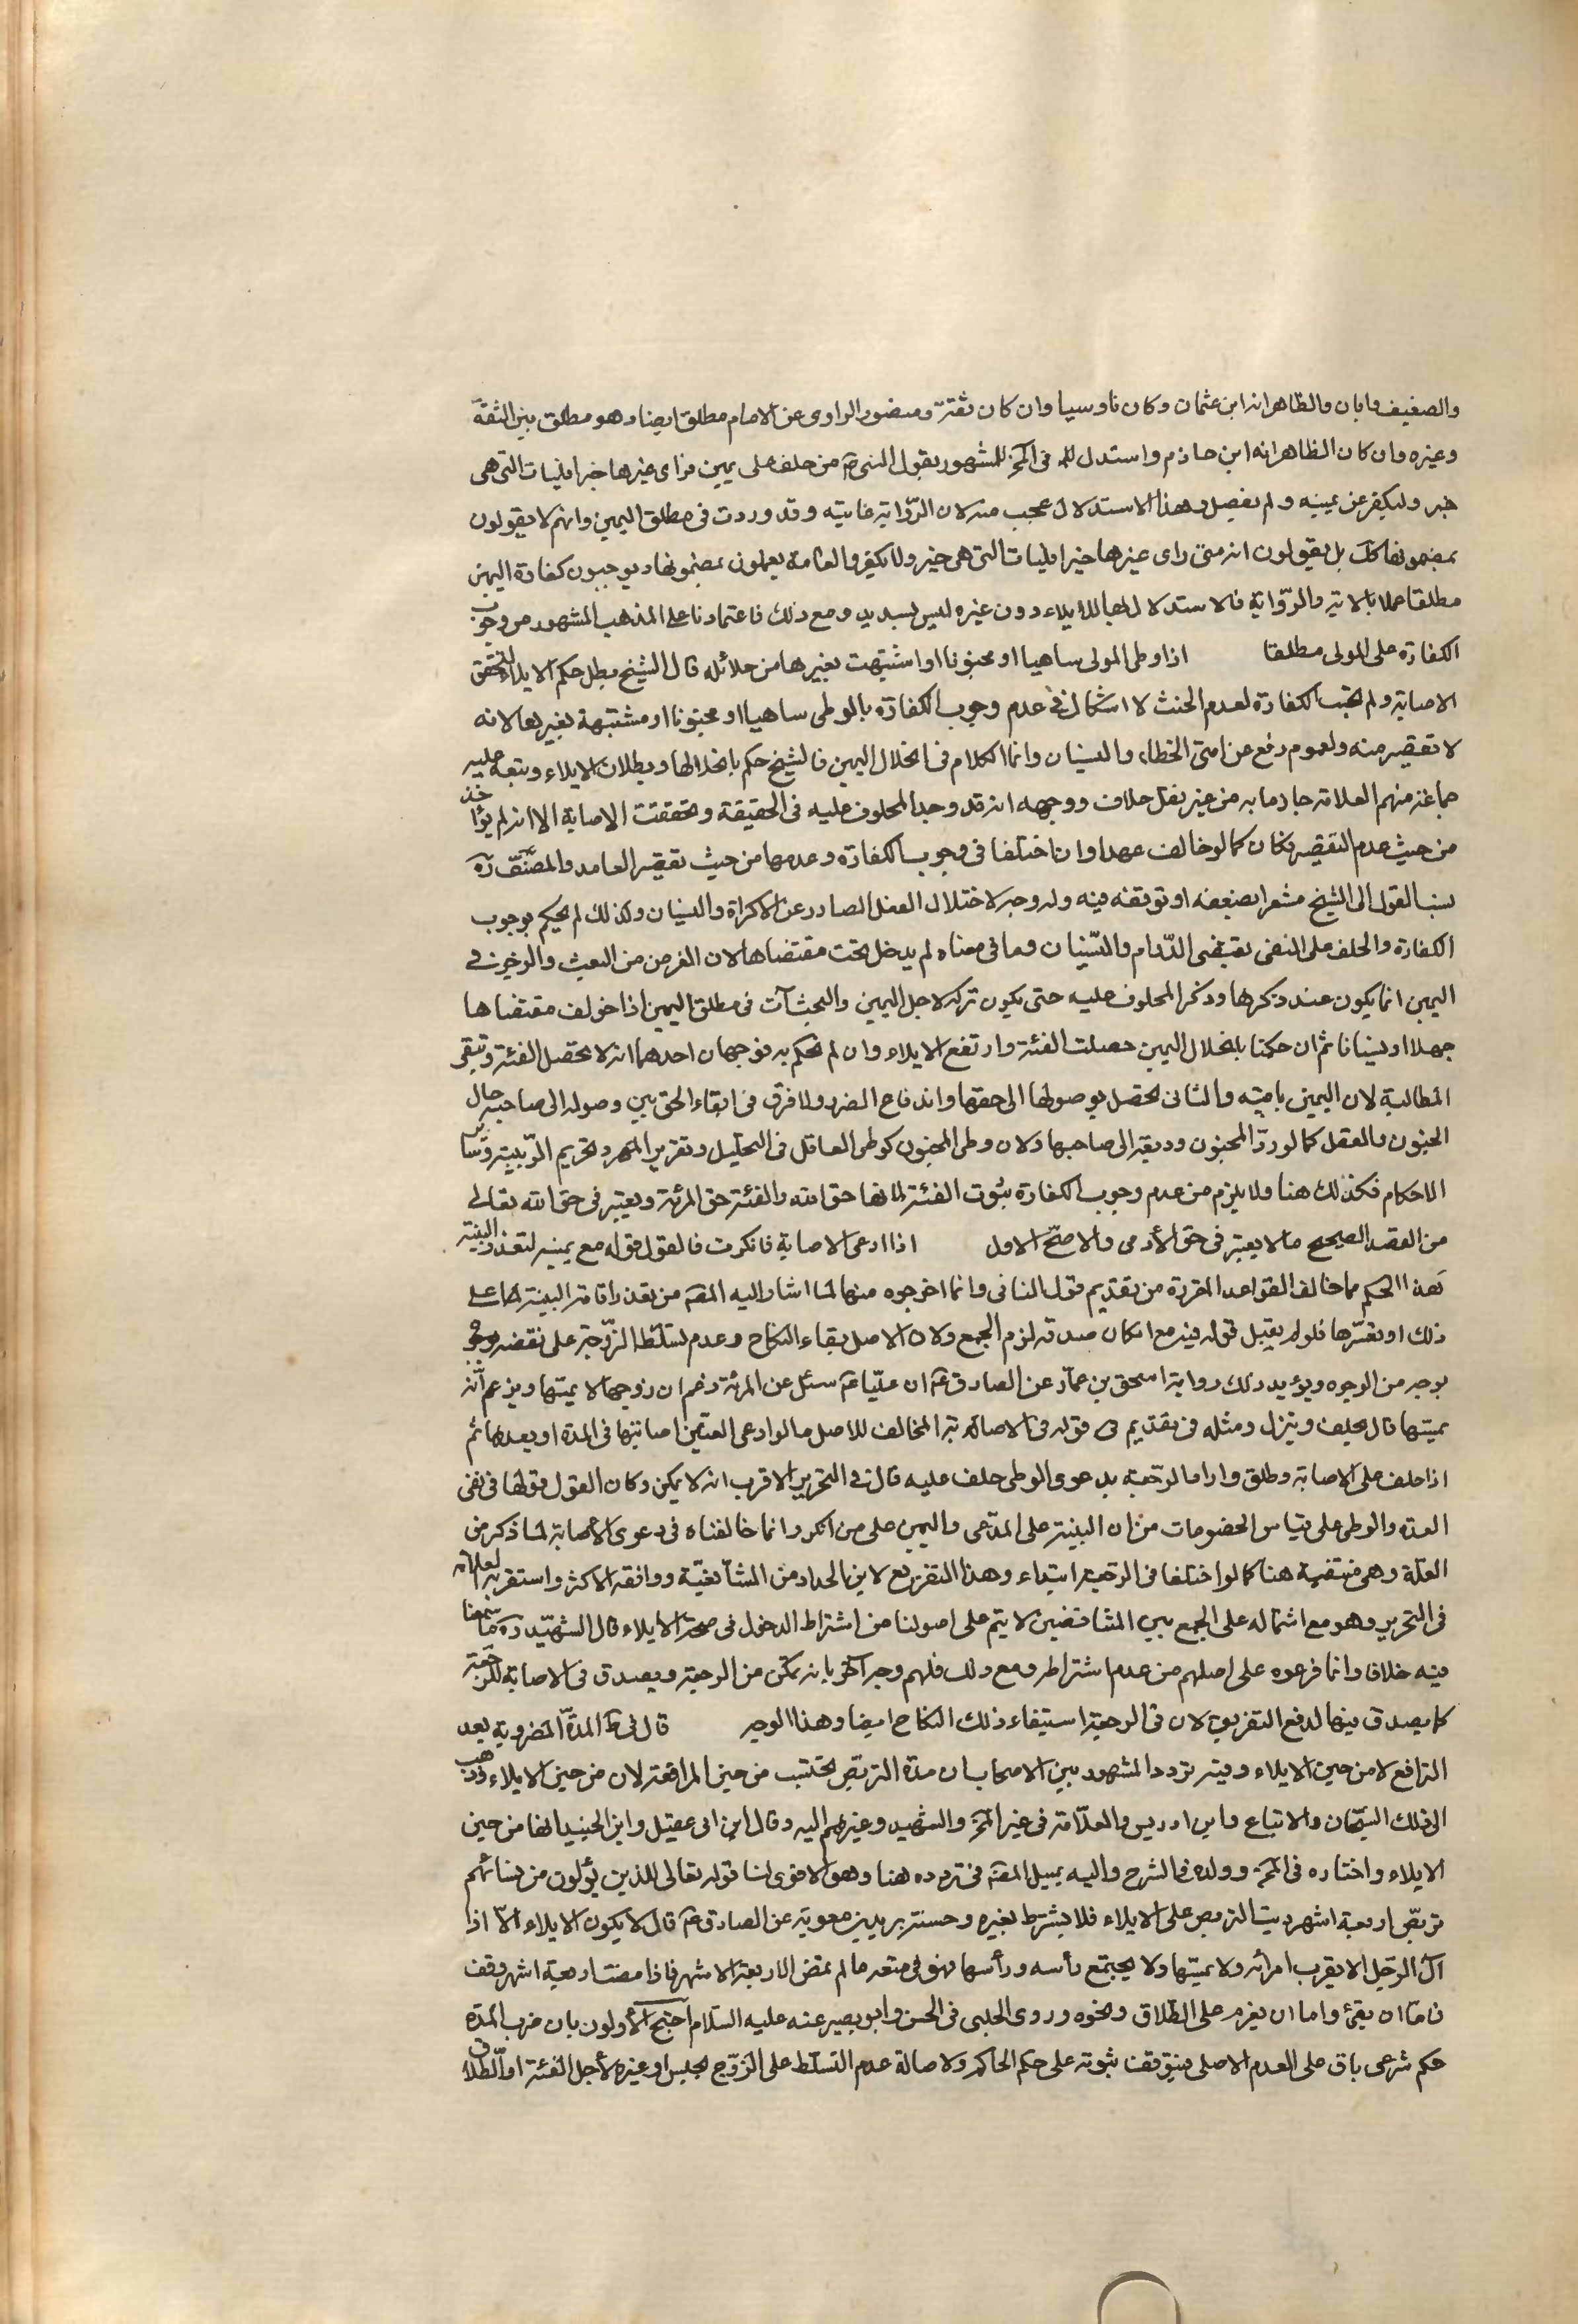 والضعيف وابان والظاهر انه ابن عثمان وكان ناوسيا وان كان ثقة ومنصور الراوى عن الامام مطلق ايضا وهو مطلق بين الثقة
وغيره وان كان الظاهر انه ابن حازم واستدل له فى المخ للمشهور بقول النبى ص من حلف على يمين فراى غيرها خيرا فليات التى هى
خير وليكفر عن يمينه ولم يفصل وهذا الاستدلال عجيب منه لان الرواية عامية وقد وردت فى مطلق اليمين وانهم لا يقولون
بمضمونها كك بل يقولون انه متى راى غيرها خيرا فليات التى هى خير ولا يكفر والعامة يعملون بمضمونها ويوجبون كفارة اليمين
مطلقا عملا بالاية والرواية فالاستدلال بها للايلاء دون غيره ليس بسديد ومع ذلك فاعتمادنا على المذهب المشهور من وجوب
الكفارة على المولى مطلقا اذا وطى المولى ساهيا او مجنونا او اشتبهت بغيرها من حلائله قال الشيخ بطل حكم الايلاء لتحقق
الاصابة ولم تجب الكفارة لعدم الحنث لا اشكال فى عدم وجوب الكفارة بالوطى ساهيا او مجنونا او مشتبهة بغيرها لانه
لا تقصير منه ولعموم رفع عن امتى الخطاء والنسيان وانما الكلام فى انحلال اليمين فالشيخ حكم بانحلالها وبطلان الايلاء وتبعه عليه
جماعة منهم العلامة جازما به من غير نقل خلاف ووجهه انه قد وجد المحلوف عليه فى الحقيقة وتحققت الاصابة الا انه لم يؤاخذ
من حيث عدم التقصير فكان كما لو خالف عمدا وان اختلفا فى وجوب الكفارة وعدمها من حيث تقصير العامد والمصنف ره
نسب القول الى الشيخ مشعرا بضعفه او توقفه فيه وله وجه لاختلال الفعل الصادر عن الاكراه والنسيان ولذلك لم يحكم بوجوب
الكفارة والحلف على النفى يقتضى الدوام والنسيان وما فى معناه لم يدخل تحت مقتضاها لان الغرض من البعث والزجر فى
اليمين انما يكون عند ذكرها وذكر المحلوف عليه حتى يكون تركه لاجل اليمين والبحث آت فى مطلق اليمين اذا خولف مقتضاها
جهلا او نسيانا ثم ان حكمنا بانحلال اليمين حصلت الفئة وارتفع الايلاء وان لم نحكم به فوجهان احدهما انه لا تحصل الفئة وتبقى
المطالبة لان اليمين باقية والثانى تحصل بوصولها الى حقها واندفاع الضرر ولا فرق فى ايفاء الحق بين وصوله الى صاحبه حال
الجنون والعقل كما لو رد المجنون وديعة الى صاحبها ولان وطى المجنون كوطى العاقل فى التحليل وتقرير المهر وتحريم الربيبة وسائر
الاحكام فكذلك هنا ولا يلزم من عدم وجوب الكفارة ثبوت الفئة لانها حق الله والفئة حق المرئة ويعتبر فى حق الله تعالى
من القصد الصحيح ما لا يعتبر فى حق الأدمى والاصح الاول اذا ادعى الاصابة فانكرت فالقول قوله مع يمينه لتعذر البينة
هذا الحكم مما خالف القواعد المقررة من تقديم قول النافى وانما اخرجوه منها لما اشار اليه المصنف من تعذر اقامة البينة لها على
ذلك او تعسرها فلو لم يقبل قوله فيه مع امكان صدقه لزم الجمع ولان الاصل بقاء النكاح وعدم تسلط الزوجة على نقضه وهو
بوجه من الوجوه ويؤيد ذلك رواية اسحق بن عمار عن الصادق ع ان عليا ع سئل عن المرئة تزعم ان زوجها لا يمسها ويزعم انه
يمسها قال يحلف ويترك ومثله فى تقديم قوله فى الاصابة المخالف للاصل ما لو ادعى العنين اصابتها فى المدة او بعدها ثم
اذا حلف على الاصابة وطلق واراد الرجعة بدعوى الوطى حلف عليه قال فى التحرير الاقرب انه لا يمكن وكان القول قولها فى نفى
العدة والوطى على قياس الخصومات من ان البينة على المدعى واليمين على من انكر وانما خالفناه فى دعوى الاصابة لما ذكر من
العلة وهى منتفية هنا كما لو اختلفا فى الرجعة ابتداء وهذا التفريع لابن الحداد من الشافعية ووافقه الاكثر واستقربه العلامة
فى التحرير وهو مع اشتماله على الجمع بين المتناقضين لا يتم على اصولنا من اشتراط الدخول فى صحة الايلاء قال الشهيد ره ما سمعنا
فيه خلافا وانما فرعوه على اصلهم من عدم اشتراطه ومع ذلك فلهم وجه آخر بانه يمكن من الرجعة ويصدق فى الاصابة للرجعة
كما يصدق فيها لدفع التفريق لان فى الرجعة استيفاء ذلك النكاح ايضا وهذا الوجه قال فى ط المدة المضروبة بعد
الترافع لا من حين الايلاء وفيه تردد المشهور بين الاصحاب ان مدة التربص تحتسب من حين المرافعة لان من حين الايلاء وذهب
الى ذلك الشيخان والاتباع وابن ادريس والعلامة فى غير المخ والشهيد وغيرهم اليه وقال ابن ابى عقيل وابن الجنيد انها من حين
الايلاء واختاره فى المخ وولده فى الشرح واليه يميل المصنف فى تردده هنا وهو الاقوى لنا قوله تعالى للذين يؤلون من نسائهم
تربص اربعة اشهر رتب التربص على الايلاء فلا يشترط بغيره وحسنة بريد بن معوية عن الصادق ع قال لا يكون الايلاء الا اذا
آلى الرجل الا يقرب امرأته ولا يمسها ولا يجتمع رأسه ورأسها فهو فى سعة ما لم يمض الاربعة الاشهر فاذا مضت اربعة اشهر وقف
فاما ان يفئ واما ان يعزم على الطلاق ونحوه وروى الحلبى فى الحسن وابو بصير عنه عليه السلام احتج الأولون بان ضرب المدة
حكم شرعى باق على العدم الاصلى فيتوقف ثبوته على حكم الحاكم ولاصالة عدم التسلط على الزوج بحبس او غيره لأجل الفئة او الطلاق